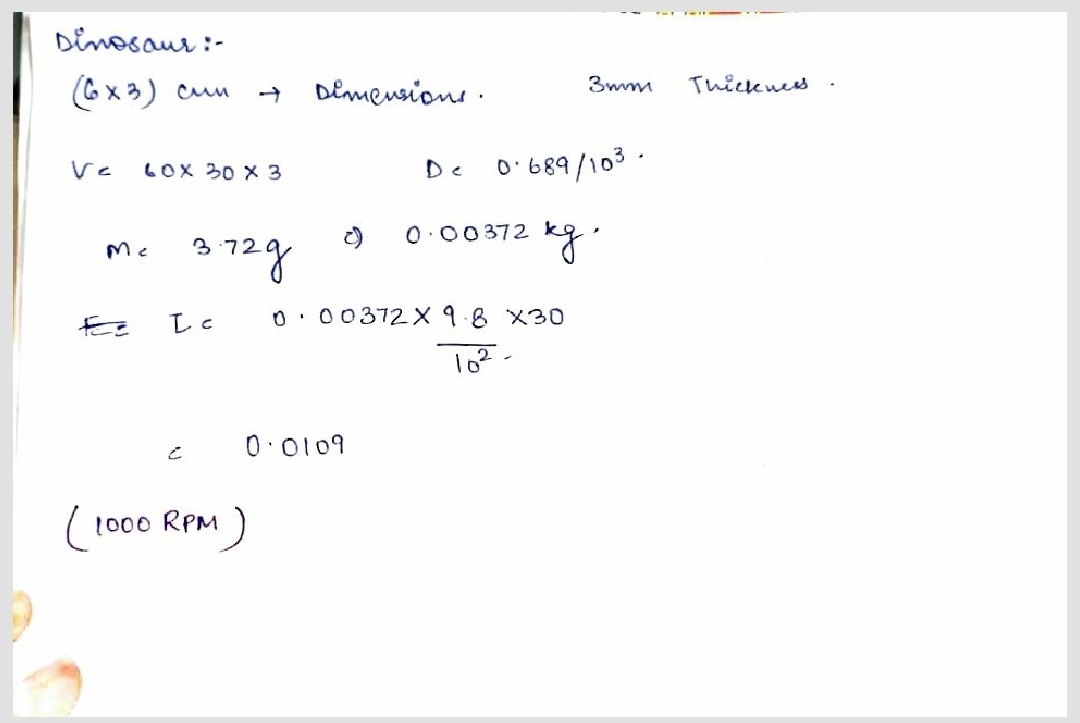 Dinosaur :-
(6 x 3) cm → Dimensions. 3mm Thickness.
V = 60 x 30 x 3 D = 0.689/10³.
M = 3.72g 0.00372 kg.
T = 0.00372 x 9.8 x 30
10²
= 0.0109
(1000 RPM)